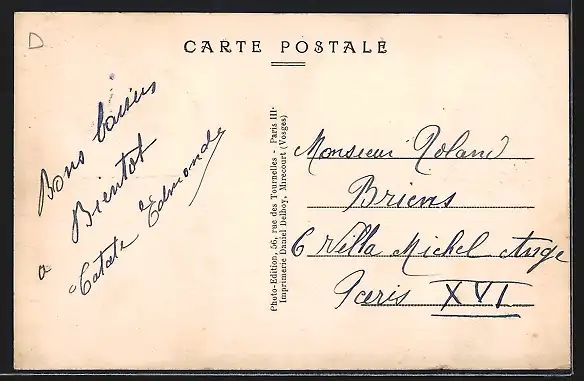 D
CARTE POSTALE
Bons baisers
a Bientot
Tatate Edmonde
Photo-Edition, 56, rue des Tournelles - Paris III·
Imprimerie Daniel Delboy, Mirecourt (Vosges)
Monsieur Roland
Briens
6 Villa Michel Ange
Paris XVI